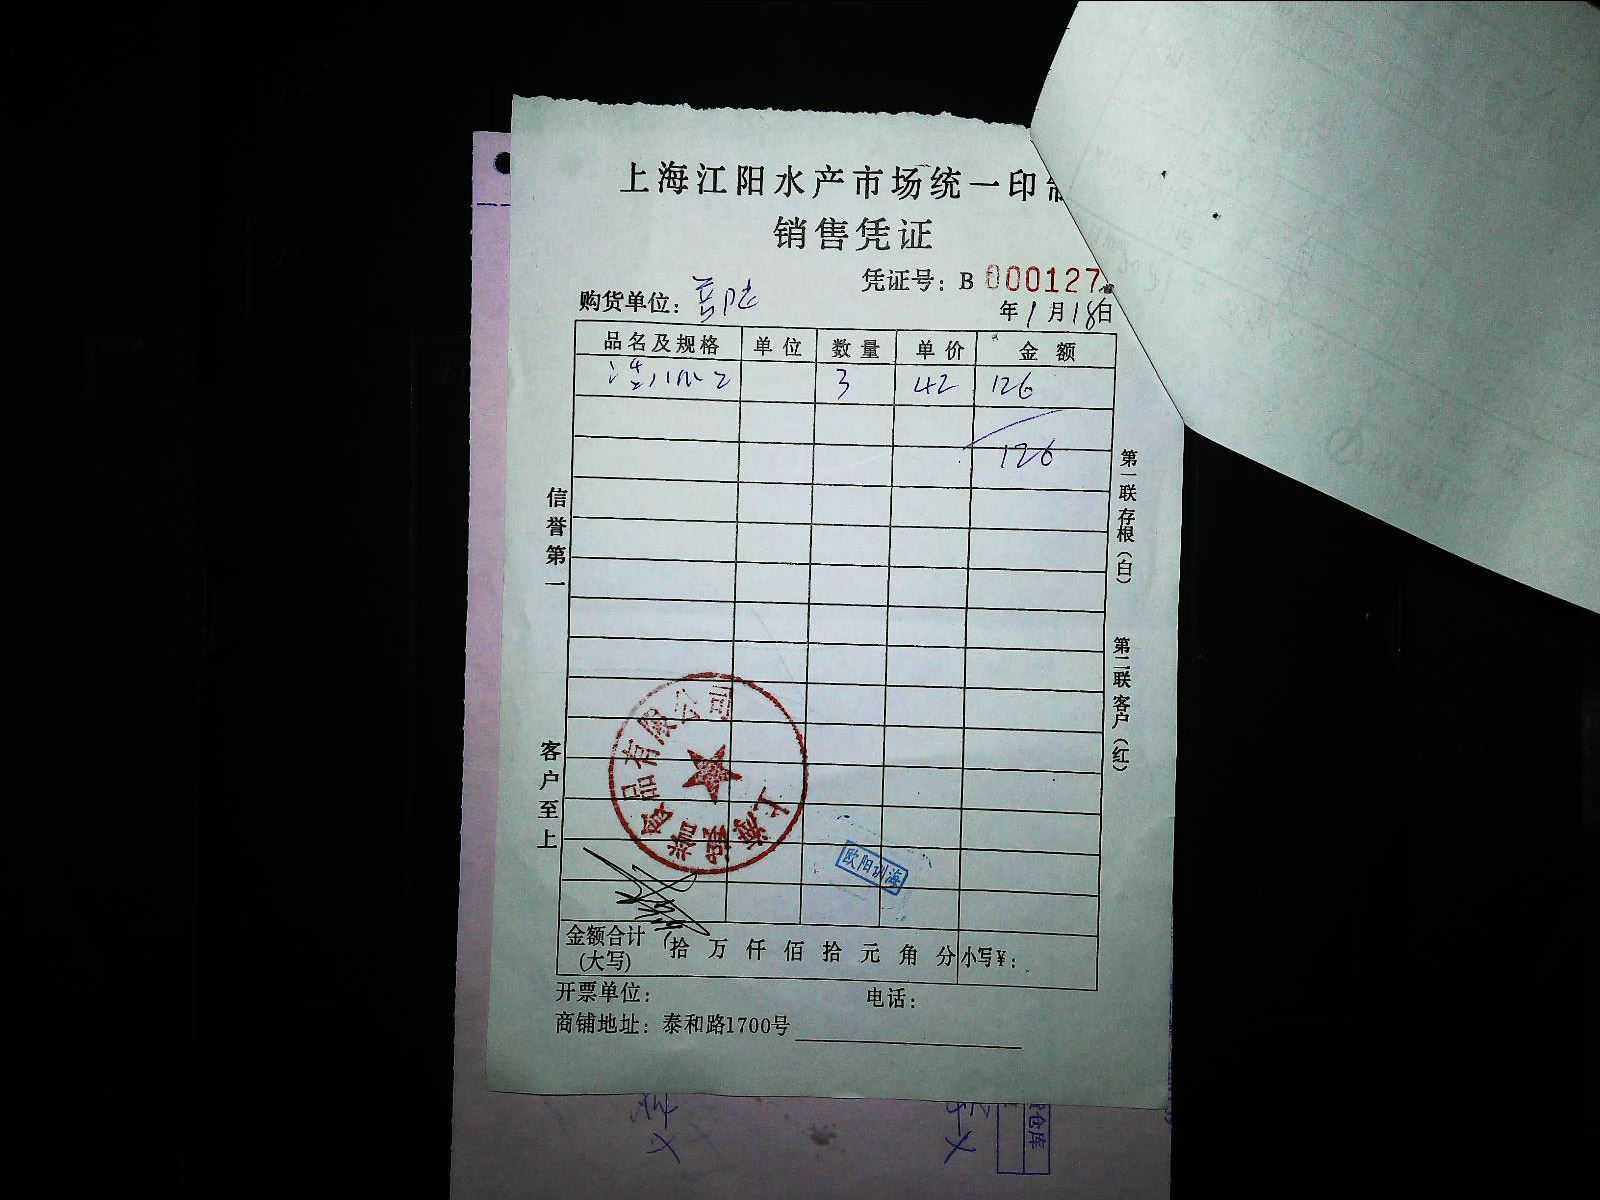 上海江阳水产市场统一印制
销售凭证
凭证号：B 000127
购货单位：普陀
年1月18日
品名及规格 单位 数量 单价 金额
3 42 126
126
信誉第一
客户至上
第一联存根（白）
第二联客户（红）
品有限公司
上海
欧阳训海
金额合计（大写） 拾 万 仟 佰 拾 元 角 分 小写¥：
开票单位： 电话：
商铺地址：泰和路1700号
仓库